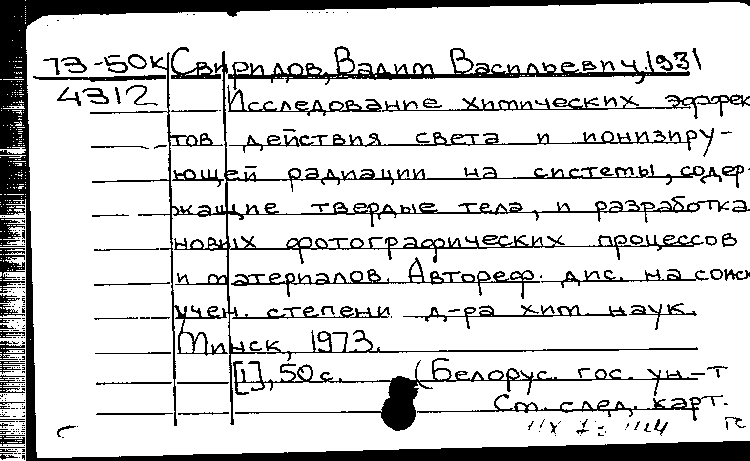 73-50к Свиридов, Вадим Васильевич, 1931
4312 Исследование химических эффек
тов действия света и ионизиру-
ющей радиации на системы, содер-
жащие твердые тела, и разработка
новых фотографических процессов
и материалов. Автореф. дис. на соиск
учен. степени д-ра хим. наук.
Минск, 1973.
[1], 50 с. (Белорус. гос. ун-т
См. след. карт.